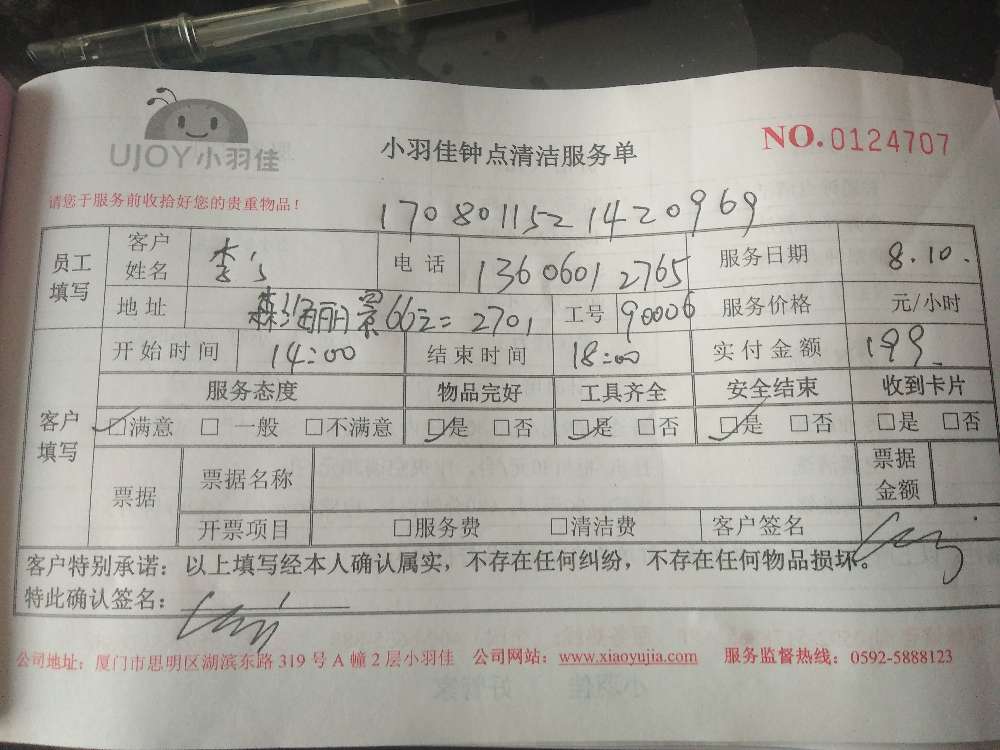 UJOY小羽佳
小羽佳钟点清洁服务单
NO.0124707
请您于服务前收拾好您的贵重物品！
1708011521420969
员工填写 客户姓名 李 电话 13606012765 服务日期 8.10.
地址 森海丽景66号 2701 工号 90006 服务价格 元/小时
客户填写 开始时间 14:00 结束时间 18:00 实付金额 199
服务态度 物品完好 工具齐全 安全结束 收到卡片
☑满意 □一般 □不满意 ☑是 □否 ☑是 □否 ☑是 □否 □是 □否
票据 票据名称 票据金额
开票项目 □服务费 □清洁费 客户签名
客户特别承诺：以上填写经本人确认属实，不存在任何纠纷，不存在任何物品损坏。
特此确认签名：
公司地址：厦门市思明区湖滨东路319号A幢2层小羽佳 公司网站：www.xiaoyujia.com 服务监督热线：0592-5888123